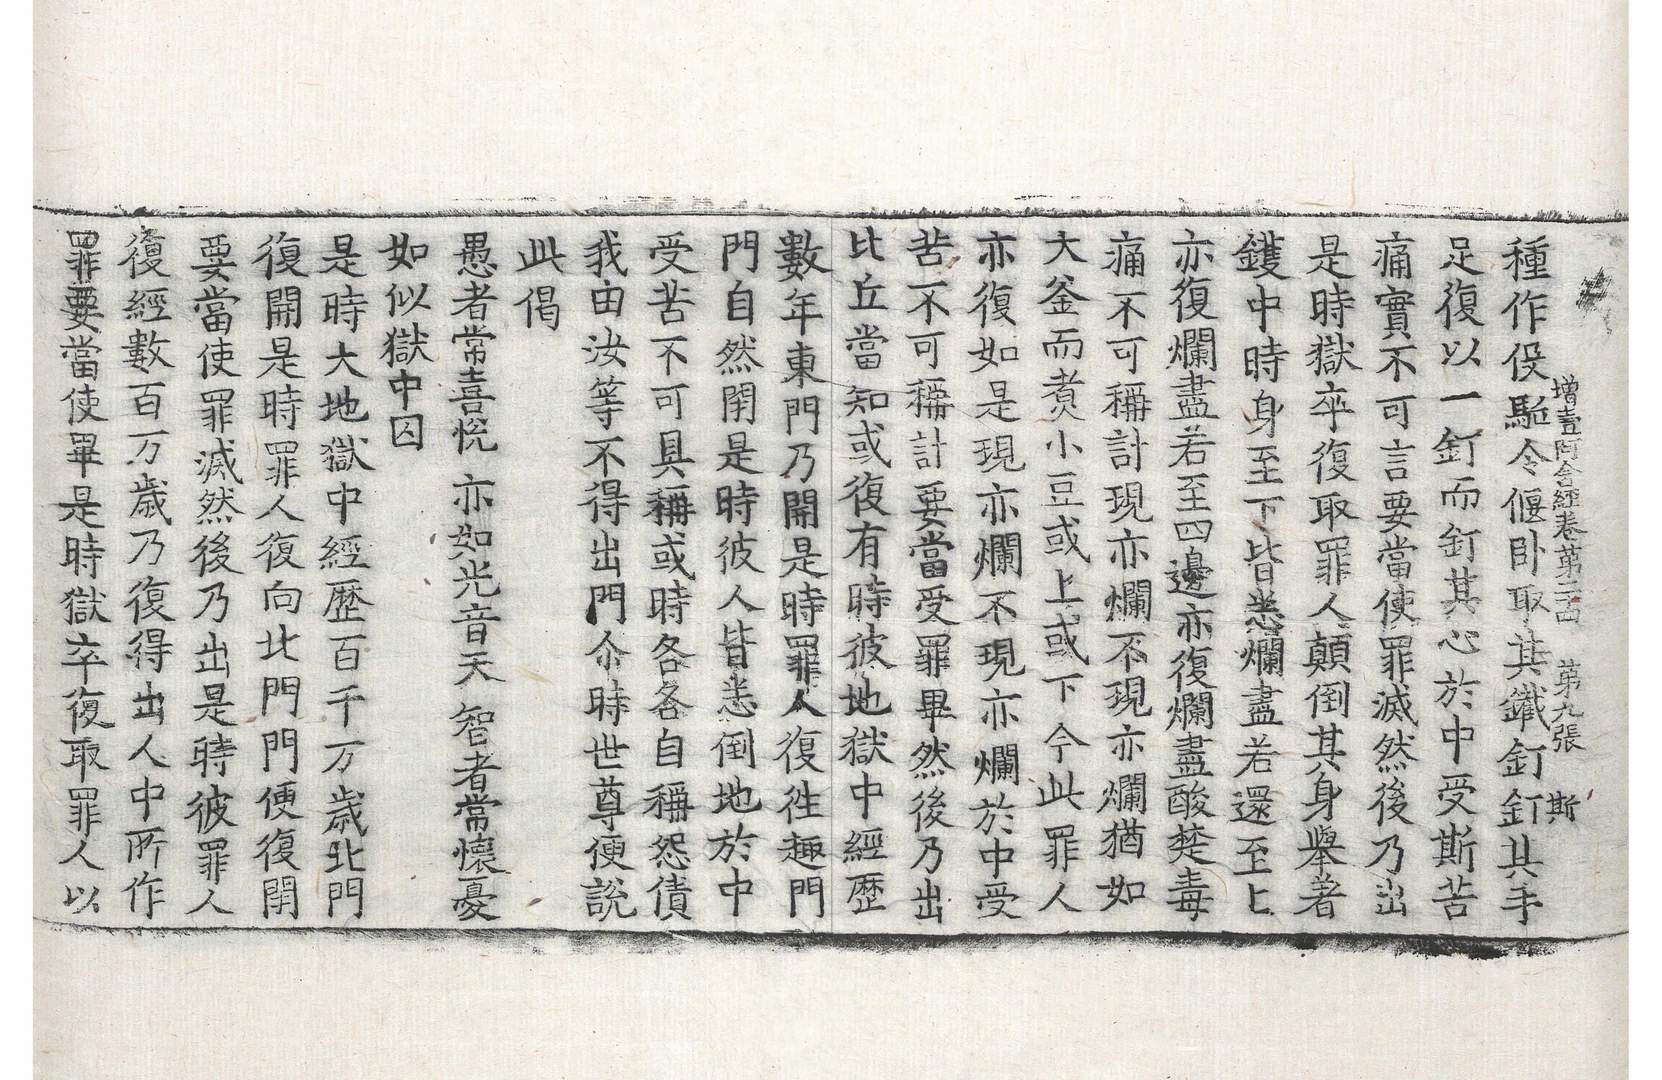 增壹阿含經卷第二四 第九張 斯
種作役駈令偃卧取其鐵釘釘其手
足復以一釘而釘其心於中受斯苦
痛實不可言要當使罪滅然後乃出
是時獄卒復取罪人顛倒其身舉著
鑊中時身至下皆悉爛盡若還至上
亦復爛盡若至四邊亦復爛盡酸楚毒
痛不可稱計現亦爛不現亦爛猶如
大釜而煮小豆或上或下今此罪人
亦復如是現亦爛不現亦爛於中受
苦不可稱計要當受罪畢然後乃出
比丘當知或復有時彼地獄中經歷
數年東門乃開是時罪人復往趣門
門自然閇是時彼人皆悉倒地於中
受苦不可具稱或時各各自稱怨債
我由汝等不得出門尒時世尊便說
此偈
愚者常喜悅 亦如光音天 智者常懷憂
如似獄中囚
是時大地獄中經歷百千万歲北門
復開是時罪人復向北門門便復閇
要當使罪滅然後乃出是時彼罪人
復經數百万歲乃復得出人中所作
罪要當使畢是時獄卒復取罪人以